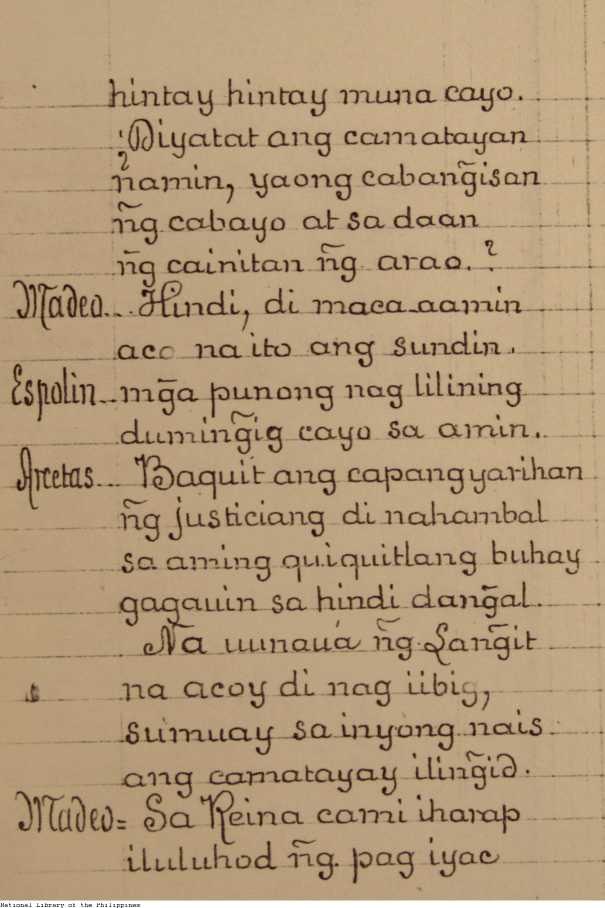 hintay hintay muna cayo.
¿Diyatat ang camatayan
namin, yaong cabang̃isan
ñg cabayo at sa daan
ñg cainitan ñg arao.?
Madeo... Hindi, di maca-aamin
aco na ito ang sundin.
Espolin.. mg̃a punong nag lilining
duming̃ig cayo sa amin.
Arcetas... Baquit ang capangyarihan
ñg justiciang di nahambal
sa aming quiquitlang buhay
gagauin sa hindi dang̃al.
Na uunauá ñg Lang̃it
na acoy di nag iibig,
sumuay sa inyong nais.
ang camatayay iling̃id.
Madeo= Sa Reina cami iharap
iluluhod ñg pag iyac
National Library of the Philippines